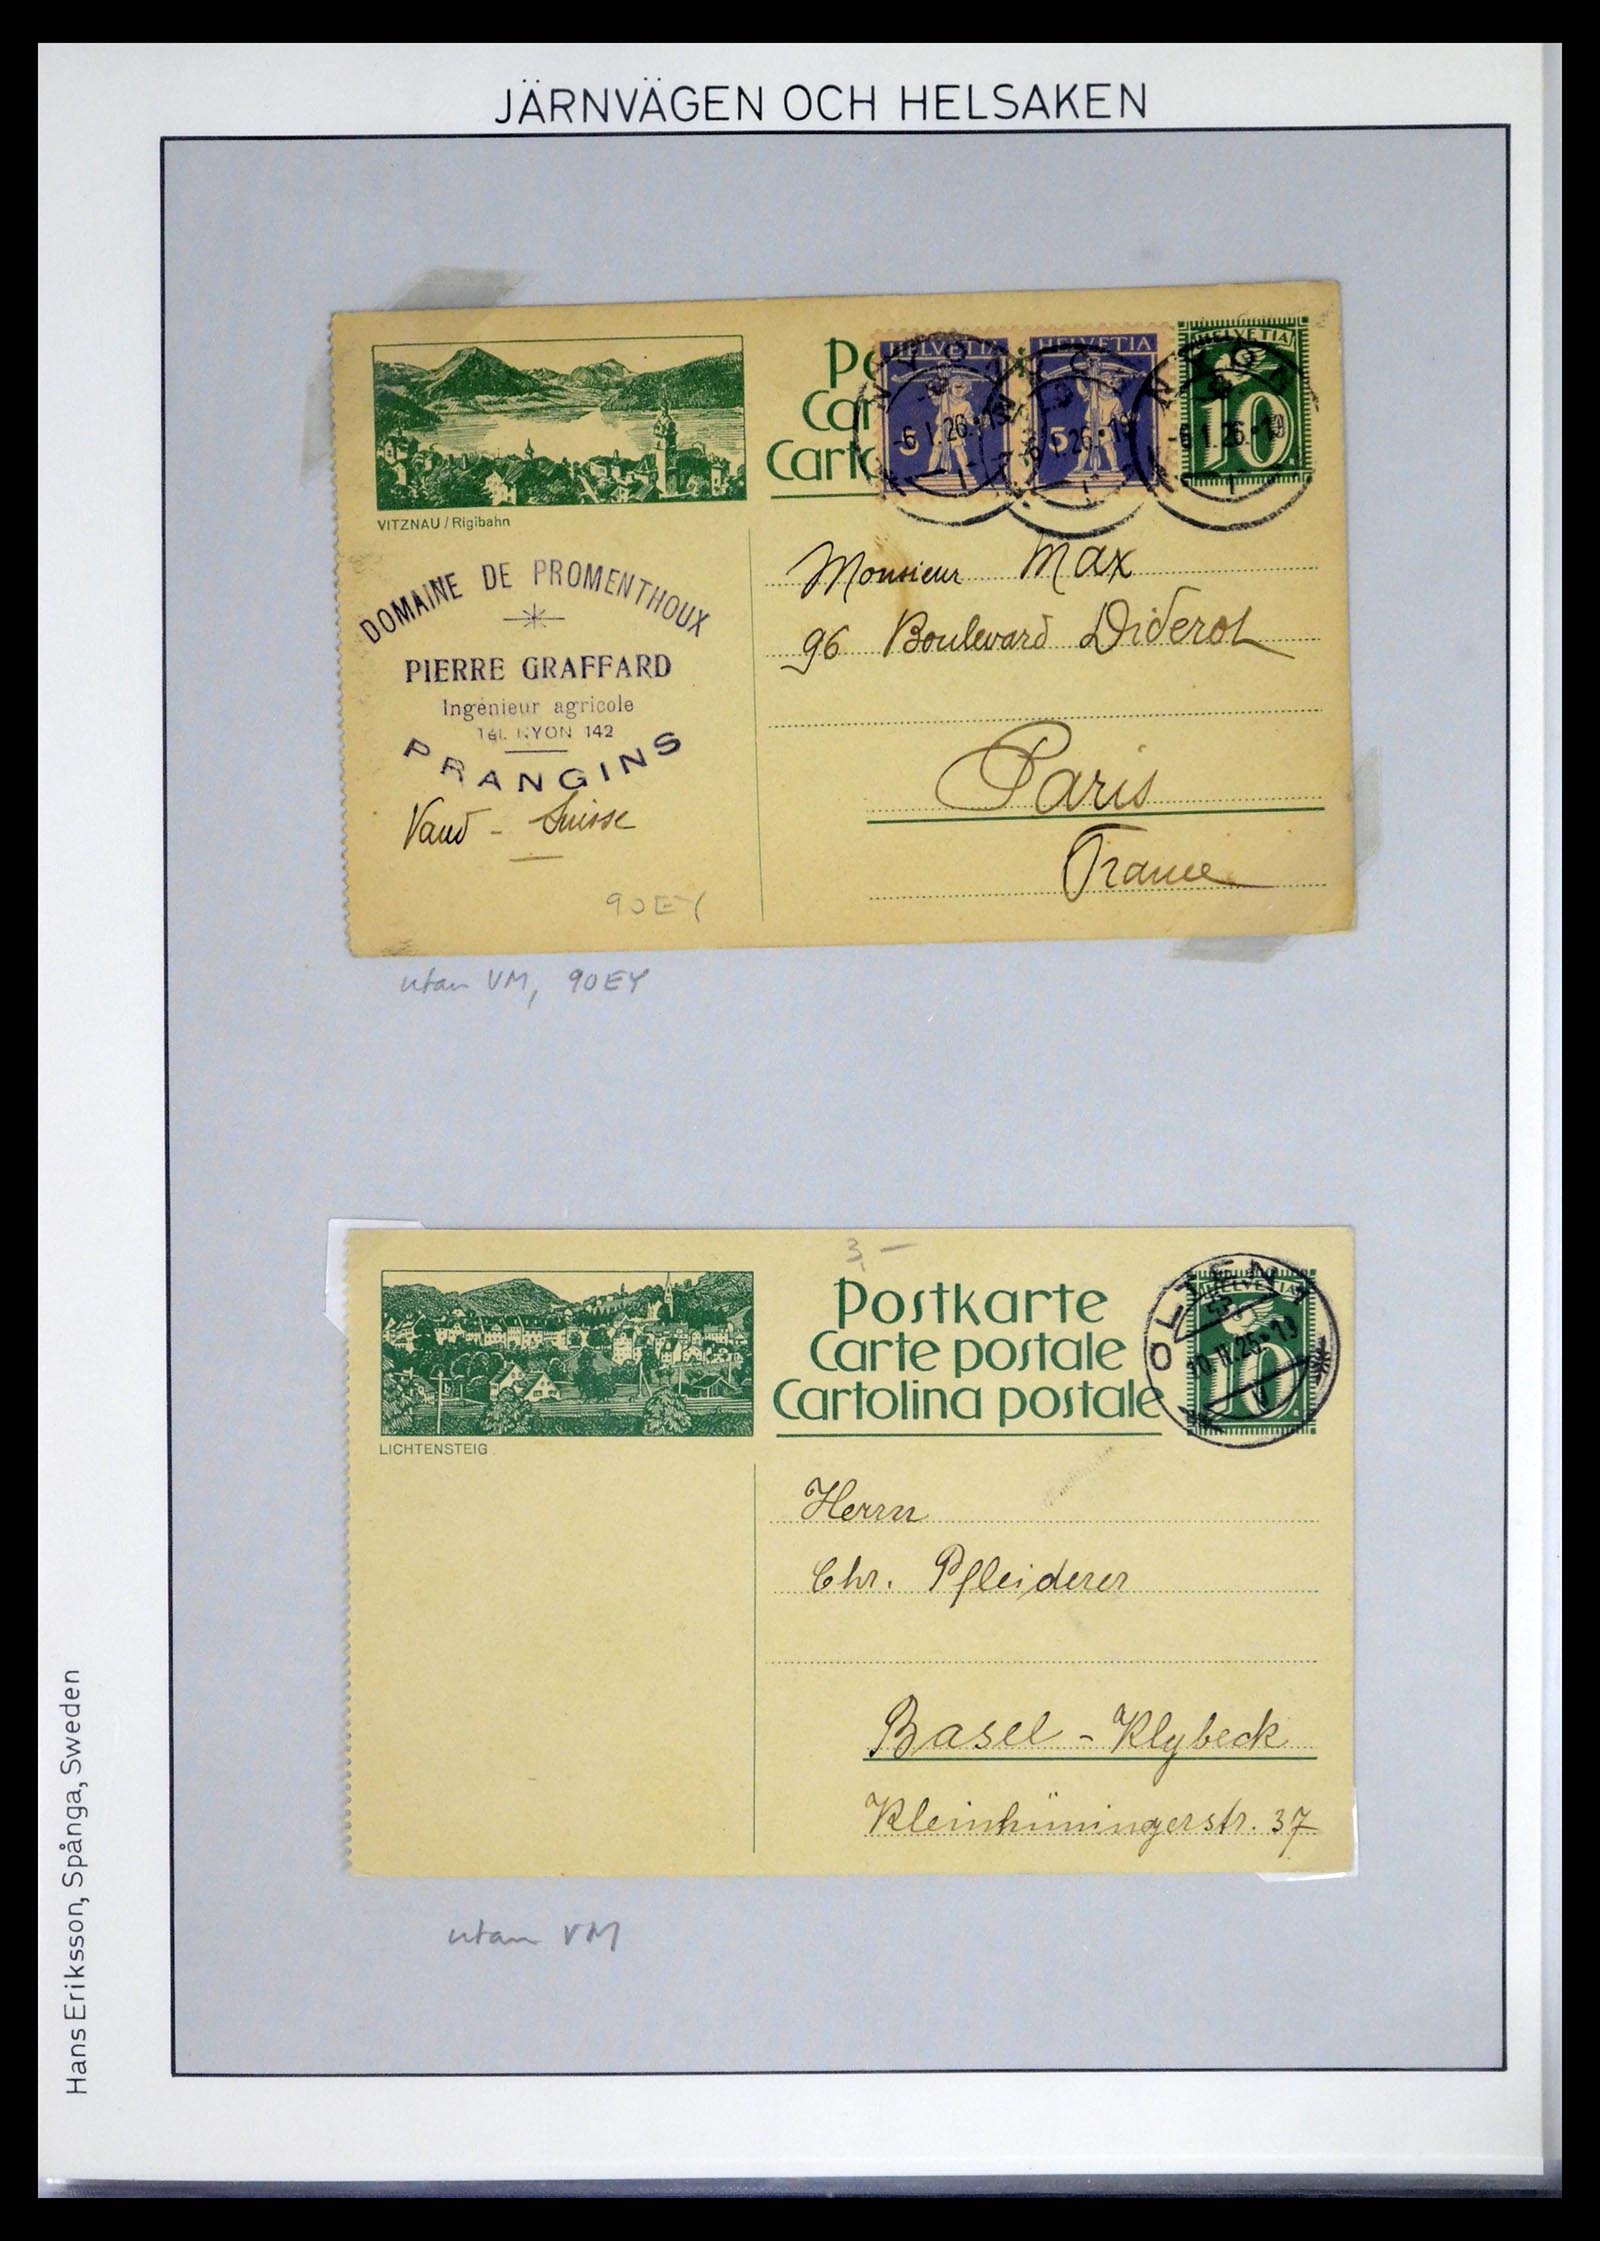 JÄRNVÄGEN OCH HELSAKEN
HELVETIA
HELVETIA
HELVETIA
5
5
10
NYON
-6.I.26.-19
VITZNAU / Rigibahn
DOMAINE DE PROMENTHOUX
PIERRE GRAFFARD
Ingénieur agricole
Tél. NYON 142
PRANGINS
Vaud - Suisse
90EY
Monsieur Max
96 Boulevard Diderot
Paris
France
utan VM, 90EY
3,-
Postkarte
Carte postale
Cartolina postale
OLTEN 1
HELVETIA
10
LICHTENSTEIG
Herrn
Chr. Pfleiderer
Basel - Klybeck
Kleinhüningerstr. 37
utan VM
Hans Eriksson, Spånga, Sweden